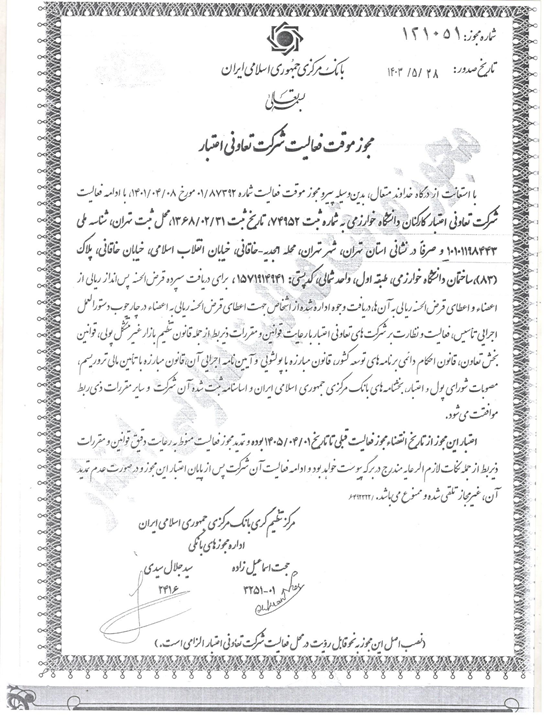 شماره مجوز: ۱۲۱۰۵۱
تاریخ صدور: ۱۴۰۳/۵/۲۸
بانک مرکزی جمهوری اسلامی ایران
بسمه تعالی
مجوز موقت فعالیت شرکت تعاونی اعتبار
با استعانت از درگاه خداوند متعال، بدین وسیله پیرو مجوز موقت فعالیت شماره ۰۱/۸۷۳۹۲ مورخ ۱۴۰۱/۰۴/۰۸، با ادامه فعالیت
شرکت تعاونی اعتبار کارکنان دانشگاه خوارزمی به شماره ثبت ۷۴۹۵۲، تاریخ ثبت ۱۳۶۸/۰۲/۳۱، محل ثبت تهران، شناسه ملی
۱۰۱۰۱۱۹۸۴۴۳ و صرفاً در نشانی استان تهران، شهر تهران، محله امجدیه-خاقانی، خیابان انقلاب اسلامی، خیابان خاقانی، پلاک
(۸۳)، ساختمان دانشگاه خوارزمی، طبقه اول، واحد شمالی، کدپستی: ۱۵۷۱۹۱۴۹۴۱، برای دریافت سپرده قرض الحسنه پس انداز ریالی از
اعضاء و اعطای قرض الحسنه ریالی به آن ها، دریافت وجوه اداره شده از اشخاص جهت اعطای قرض الحسنه ریالی به اعضاء در چارچوب دستورالعمل
اجرایی تاسیس، فعالیت و نظارت بر شرکت های تعاونی اعتبار با رعایت قوانین و مقررات ذیربط از جمله قانون تنظیم بازار غیرمتشکل پولی، قوانین
بخش تعاون، قانون احکام دائمی برنامه های توسعه کشور، قانون مبارزه با پولشویی و آیین نامه اجرایی آن، قانون مبارزه با تامین مالی تروریسم،
مصوبات شورای پول و اعتبار، بخشنامه های بانک مرکزی جمهوری اسلامی ایران و اساسنامه ثبت شده آن شرکت و سایر مقررات ذی ربط
موافقت می شود.
اعتبار این مجوز از تاریخ انقضاء مجوز فعالیت قبلی تا تاریخ ۱۴۰۵/۰۴/۰۱ بوده و تمدید مجوز فعالیت منوط به رعایت دقیق قوانین و مقررات
ذیربط از جمله نکات لازم الرعایه مندرج در برگ پیوست خواهد بود و ادامه فعالیت آن شرکت پس از پایان اعتبار این مجوز و در صورت عدم تمدید
آن، غیرمجاز تلقی شده و ممنوع می باشد.
مرکز تنظیم گری بانک مرکزی جمهوری اسلامی ایران
اداره مجوزهای بانکی
حجت اسماعیل زاده
سید جلال سیدی
۳۲۵۱-۰۱
۲۴۱۶
(نصب اصل این مجوز به نحو قابل رؤیت در محل فعالیت شرکت تعاونی اعتبار الزامی است.)